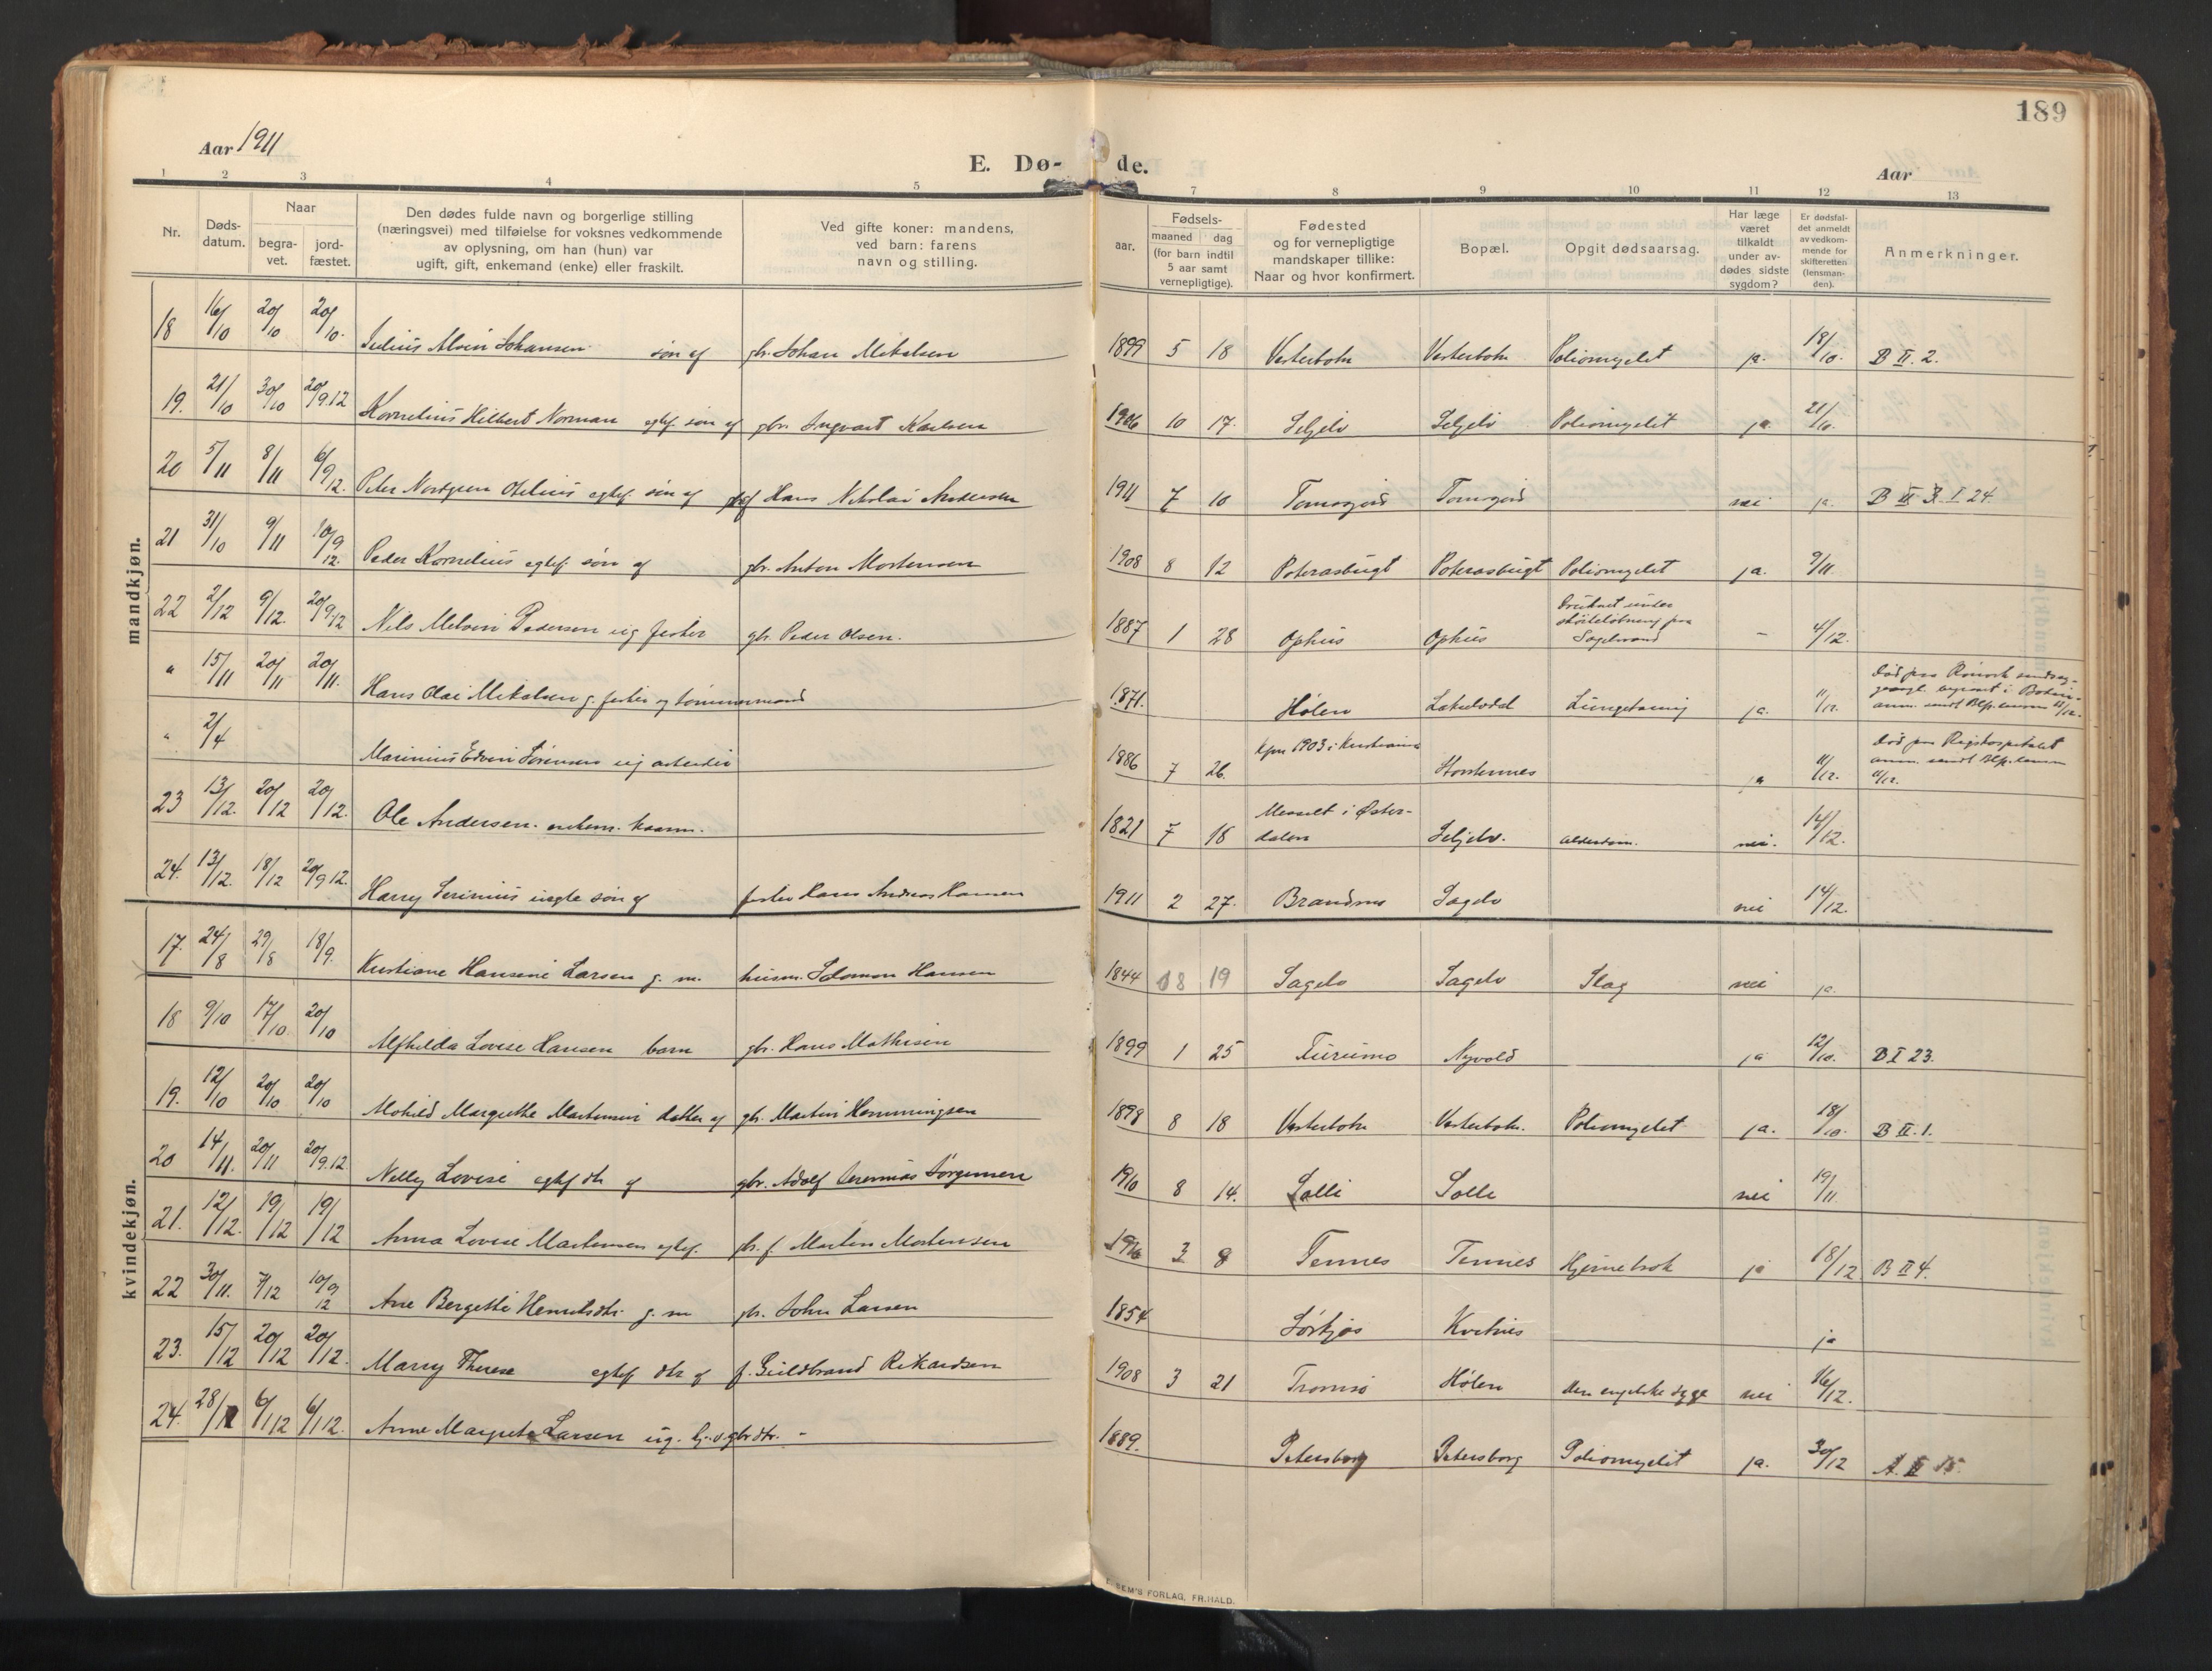 189
Aar 1911
E. Dø- de.
Aar
1 2 3 4 5 7 8 9 10 11 12 13
Nr.
Døds-
datum.
Naar
begra-
vet.
jord-
fæstet.
Den dødes fulde navn og borgerlige stilling
(næringsvei) med tilføielse for voksnes vedkommende
av oplysning, om han (hun) var
ugift, gift, enkemand (enke) eller fraskilt.
Ved gifte koner: mandens,
ved barn: farens
navn og stilling.
aar.
Fødsels-
maaned dag
(for barn indtil
5 aar samt
vernepligtige).
Fødested
og for vernepligtige
mandskaper tillike:
Naar og hvor konfirmert.
Bopæl.
Opgit dødsaarsag.
Har læge
været
tilkaldt
under av-
dødes sidste
sygdom?
Er dødsfal-
det anmeldt
av vedkom-
mende for
skifteretten
(lensman-
den).
Anmerkninger.
mandkjøn.
18 16/10 20/10 20/10. Julius Alvin Johansen. søn af gbr. Johan Mikalsen 1899 5 18 Vesterbotn Vesterbotn Poliomyelit ja. 18/10. B II. 2.
19. 21/10 30/10 20/9.12 Kornelius Hilbert Norman egtef. søn af gbr. Ingvart Karlsen 1906 10 17. Seljelv Seljelv Poliomyelit ja. 21/10.
20 5/11 8/11 6/9 12. Peter Nordgren Otelius egtef. søn af Hans Nikolai Andersen 1911 7 10 Tomasjord Tomasjord nei ja. B II 3. I 24.
21 31/10 9/11 10/9 12. Peder Kornelius egtef. søn af gbr. Anton Mortensen 1908 8 12 Poterasbugt Poterasbugt Poliomyelit ja. 9/11
22 2/12 9/12. 20/9.12 Nils Melvin Pedersen ug fisker gbr. Peder Olsen. 1887 1 28 Ophus Ophus Druknet under
skøiteløbning fra
Sagelvvand - 4/12.
" 15/11 20/11 20/11. Hans Olai Mikalsen g. fisker og tømmermand 1871. Hølen Laksvatd Lungetæring ja. 11/12.
" 2/4 Marinius Edvin Sørensen ug arbeider 1886 7 26. 1903 i Kristiania Storstennes ja 11/12. Død paa Rigshospitalet
anm. sendt
11/12.
23 13/12. 20/12 20/12. Ole Andersen. enkem. kaarm. 1821 7 18 Messelt i Øster-
dalen Seljelv. alderdom. nei. 14/12.
24. 13/12. 18/12 20/9 12. Harry Serinius uegte søn af fisker Hans Andreas Hansen 1911 2 27. Brandmo Sagelv nei 14/12.
kvindekjøn.
17. 24/8 29/8 18/9. Kristiane Hansine Larsen g. m. husm. Salomon Hansen 1844 08 19 Sagelv Sagelv Slag nei ja.
18 9/10 17/10. 20/10 Alfhilda Lovise Hansen barn gbr. Hans Mathisen 1899 1 25 Furumo Nyvold ja 12/10. B I 23.
19. 12/10 20/10 20/10 Mohild Margrethe Martinsen datter af gbr. Martin Hemmingsen 1898 8 18 Vesterbotn Vesterbotn. Poliomyelit ja. 18/10. B II. 1.
20 14/11. 20/11 20/9.12 Nelly Lovise egtef dtr af gbr. Adolf Jeremias Jørgensen 1910 8 14. Solli Solli nei 19/11.
21. 12/12. 19/12 19/12 Anna Lovise Martinsen egtef. gbr. f. Martin Mortensen 3 8 Tennes Tennes ja 18/12 B II 4.
22 30/11. 7/12 10/9 12 Ane Bergitte Henriksdtr. g. m gbr. John Larsen 1854 Sørkjos Kvitnes ja
23. 15/12 20/12 20/12. Marry Therese egtef dtr af f. Guldbrand Rikardsen 1908 3 21 Tromsø Hølen den engelske syge nei 16/12.
24. 28/12 6/1 12 6/1 12. Anne Margrete Larsen ug. gbrdtr. - 1889. Petersborg Petersborg Poliomyelit ja. 30/12 A. II 15.
SEM'S FORLAG, FR.HALD.